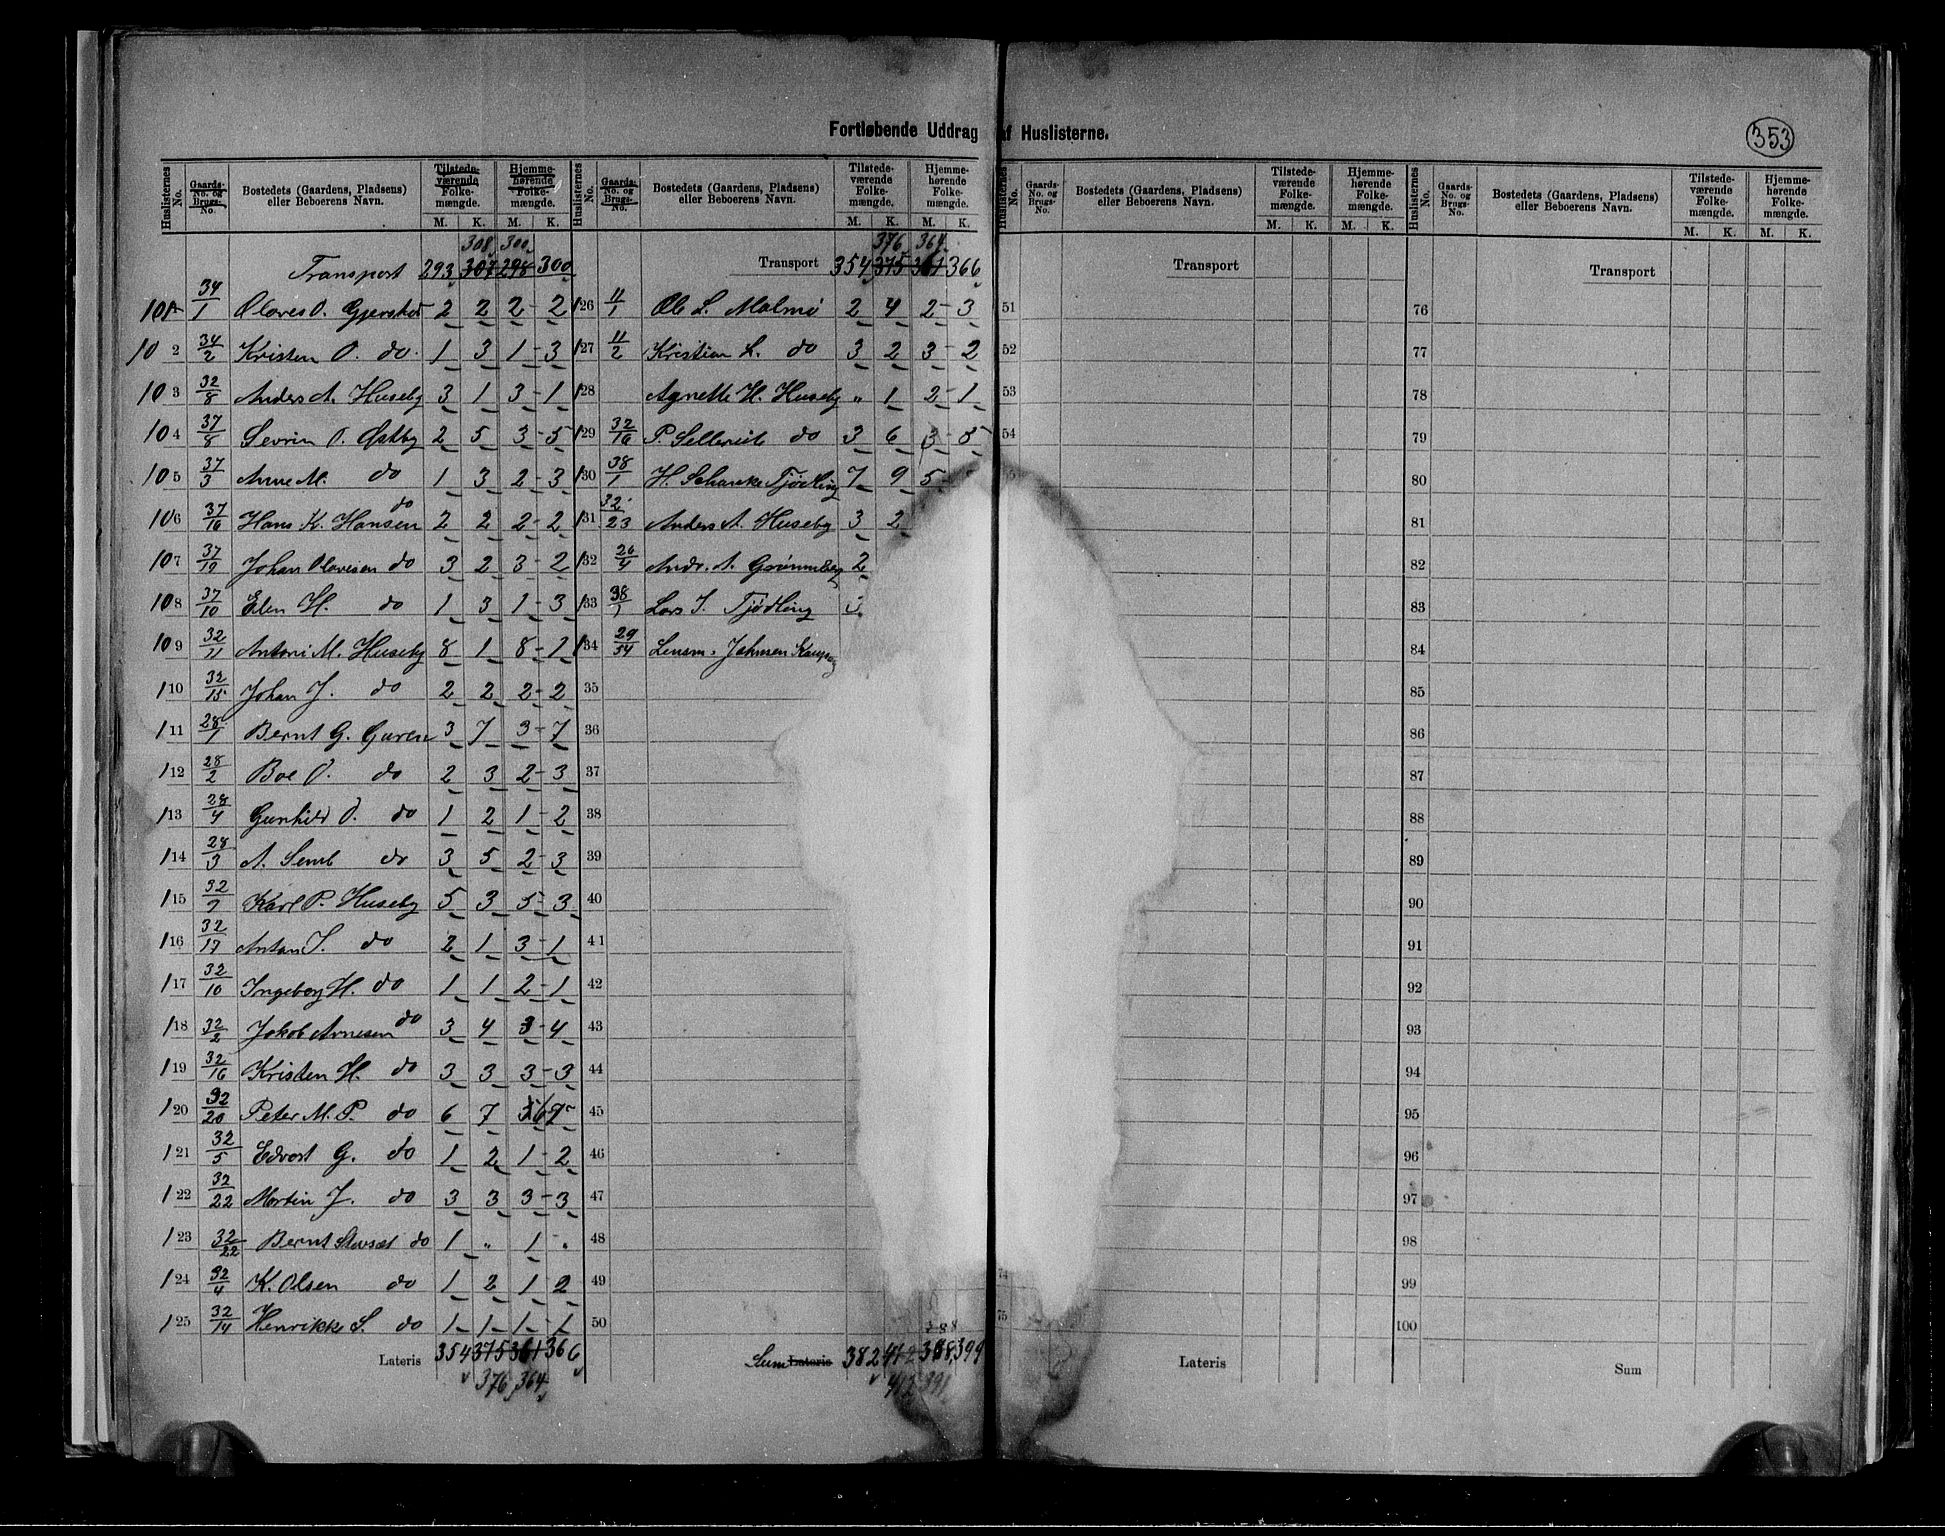 Fortløbende Uddrag af Huslisterne.
353
Huslisternes No. Gaards-No. og Brugs-No. Bostedets (Gaardens, Pladsens) eller Beboerens Navn. Tilstedeværende Folkemængde. Hjemmehørende Folkemængde.
M. K. M. K.
308 300
Transport 293 307 298 300
101 34/1 Olaves O. Gjersket 2 2 2 - 2
102 34/2 Kristen O. do. 1 3 1 - 3
103 32/8 Anders A. Huseby 3 1 3 - 1
104 37/8 Sevrin O. Østby 2 5 3 - 5
105 37/3 Anne M. do 1 3 2 - 3
106 37/16 Hans K. Hansen do 2 2 2 - 2
107 37/19 Johan Olavesen do 3 2 3 - 2
108 37/10 Elen H. do 1 3 1 - 3
109 32/11 Antoni M. Huseby 8 1 8 - 1
110 32/15 Johan J. do 2 2 2 - 2
111 28/1 Bernt G. Guren 3 7 3 - 7
112 28/2 Boe O. do 2 3 2 - 3
113 28/4 Gunhild O. do 1 2 1 - 2
114 28/3 A. Semb do 3 5 2 - 3
115 32/7 Karl P. Huseby 5 3 5 - 3
116 32/17 Antan S. do 2 1 3 - 1
117 32/10 Ingeborg H. do 1 1 2 - 1
118 32/2 Jokob Arnesen do 3 4 3 - 4
119 32/16 Kristen H. do 3 3 3 - 3
120 32/20 Peter M. P. do 6 7
121 32/5 Edvart G. do 1 2 1 - 2
122 32/22 Martin J. do 3 3 3 - 3
123 32/22 Bernt Stavset do 1 „ 1 „
124 32/4 K. Olsen do 1 2 1 - 2
125 32/14 Henrikke S. do 1 - 1 - 1 - 1
Lateris 354 375 361 366
376 364
Huslisternes No. Gaards-No. og Brugs-No. Bostedets (Gaardens, Pladsens) eller Beboerens Navn. Tilstedeværende Folkemængde. Hjemmehørende Folkemængde.
M. K. M. K.
376 364
Transport 354 375 361 366
126 11/1 Ole L. Malmø 2 4 2 - 3
127 11/2 Kristian L. do 3 2 3 - 2
128 Agnette H. Huseby „ 1 2 - 1
129 32/16 P. do 3 6 3 - 5
130 38/1 H. Schancke Tjødling 7 9 5
131 32/23 Anders A. Huseby 3 2
132 26/4 Andr. A. Grønneberg 2
133 38/1 Lars I. Tjødling 3
134 29/54 Lensm. Johnsen Kaupang
35
36
37
38
39
40
41
42
43
44
45
46
47
48
49
50
Sum Lateris 382 412 388 399
412 391
Huslisternes No. Gaards-No. og Brugs-No. Bostedets (Gaardens, Pladsens) eller Beboerens Navn. Tilstedeværende Folkemængde. Hjemmehørende Folkemængde.
M. K. M. K.
Transport
51
52
53
54
74
75
Lateris
Huslisternes No. Gaards-No. og Brugs-No. Bostedets (Gaardens, Pladsens) eller Beboerens Navn. Tilstedeværende Folkemængde. Hjemmehørende Folkemængde.
M. K. M. K.
Transport
76
77
78
79
80
81
82
83
84
85
86
87
88
89
90
91
92
93
94
95
96
97
98
99
100
Sum